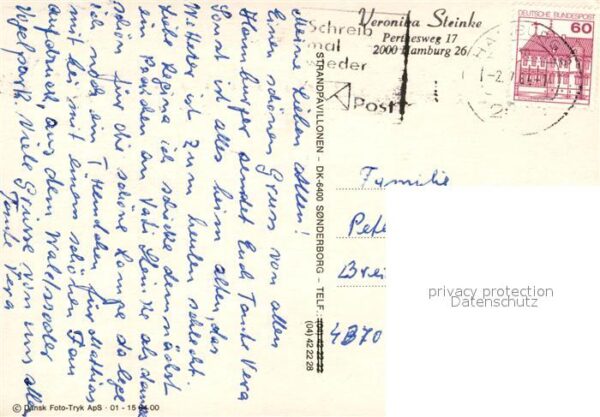 Meine Lieben allen!
Einen schönen Gruss von allen
Hamburger sendet Euch Tante Vera
Sonst ist alles beim alten, das
Wetter ist zum heulen schlecht.
Lieb Regina ich schicke demnächst
ein an Vati Steinke als danke
schön für die schöne Lampe da lege
ich noch ein T Hemdchen für Mathias
mit bei mit einem schönen
aufdruck, aus dem Walsroder
Vogelpark. Viele Grüsse von uns alle
Tante Vera
STRANDPAVILLONEN - DK-6400 SØNDERBORG - TELF. (04) 42 22 22
(04) 42 22 28
© Dansk Foto-Tryk ApS · 01 - 15 00
Schreib
mal
wieder
Post
Veronika Steinke
Perthesweg 17
2000 Hamburg 26
DEUTSCHE BUNDESPOST
60
HAMBURG
Familie
Pete
Brei
4370
privacy protection
Datenschutz